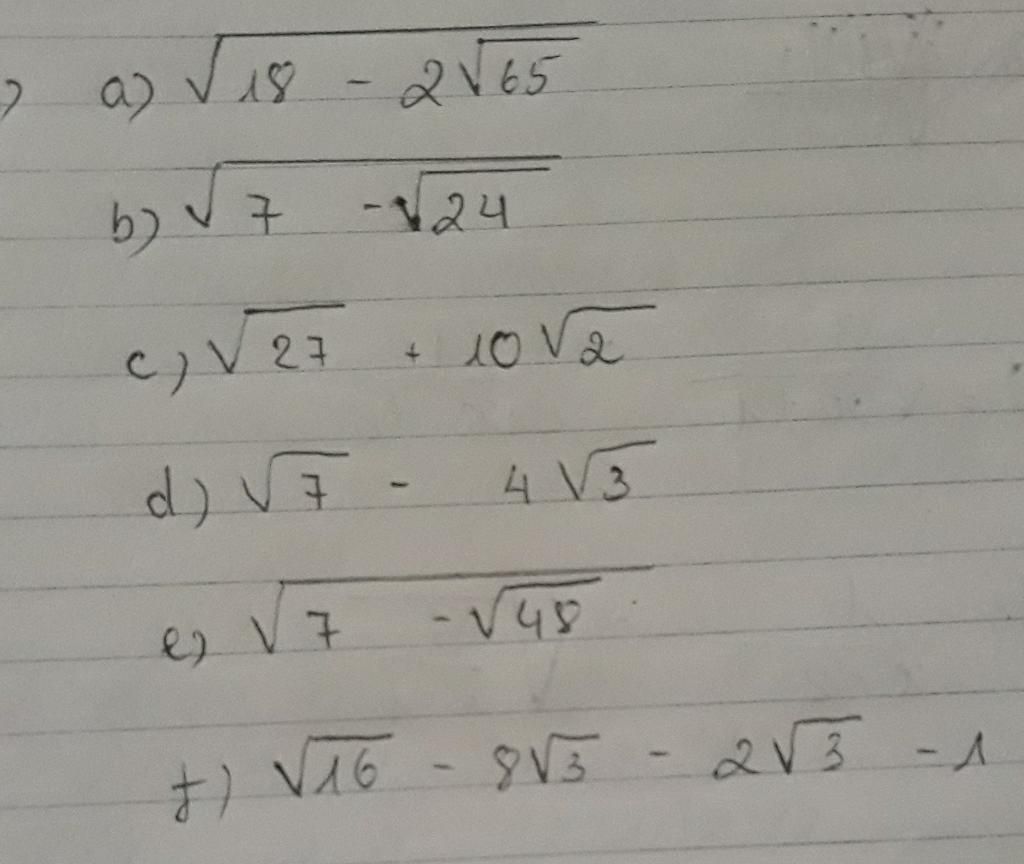 a) √(18 - 2√65)
b) √(7 - √24)
c) √27 + 10√2
d) √7 - 4√3
e) √(7 - √48)
f) √16 - 8√3 - 2√3 - 1